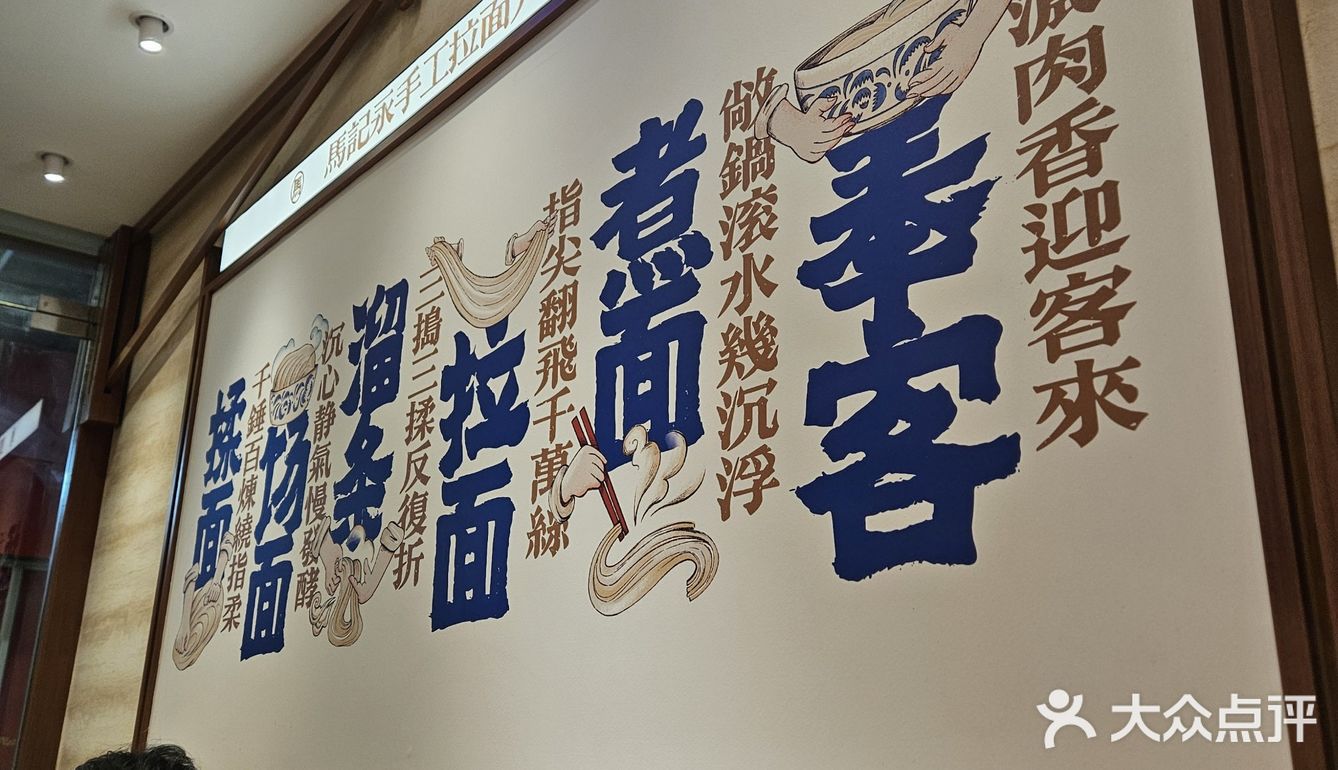 馬
馬記永手工拉面
揉面
千錘百煉繞指柔
饧面
沉心静氣慢發酵
溜条
三搗三揉反復折
拉面
指尖翻飛千萬絲
煮面
敞鍋滚水幾沉浮
奉客
肉香迎客來
大众点评